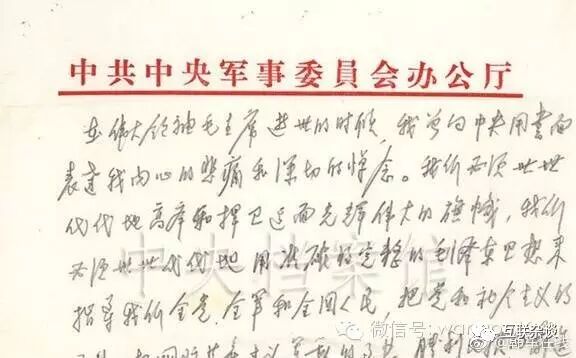 中共中央军事委員会办公厅
在伟大领袖毛主席逝世的时候，我曾向中央用书面
表达我内心的悲痛和深切的悼念。我们必须世世
代代地高举和捍卫这面光辉伟大的旗帜，我们
必须世世代代地用准确的完整的毛泽东思想来
指导我们全党、全军和全国人民，把党和社会主义的
国际共产主义运动的事业，胜利地
中央档案馆
微信号:
互联杂谈